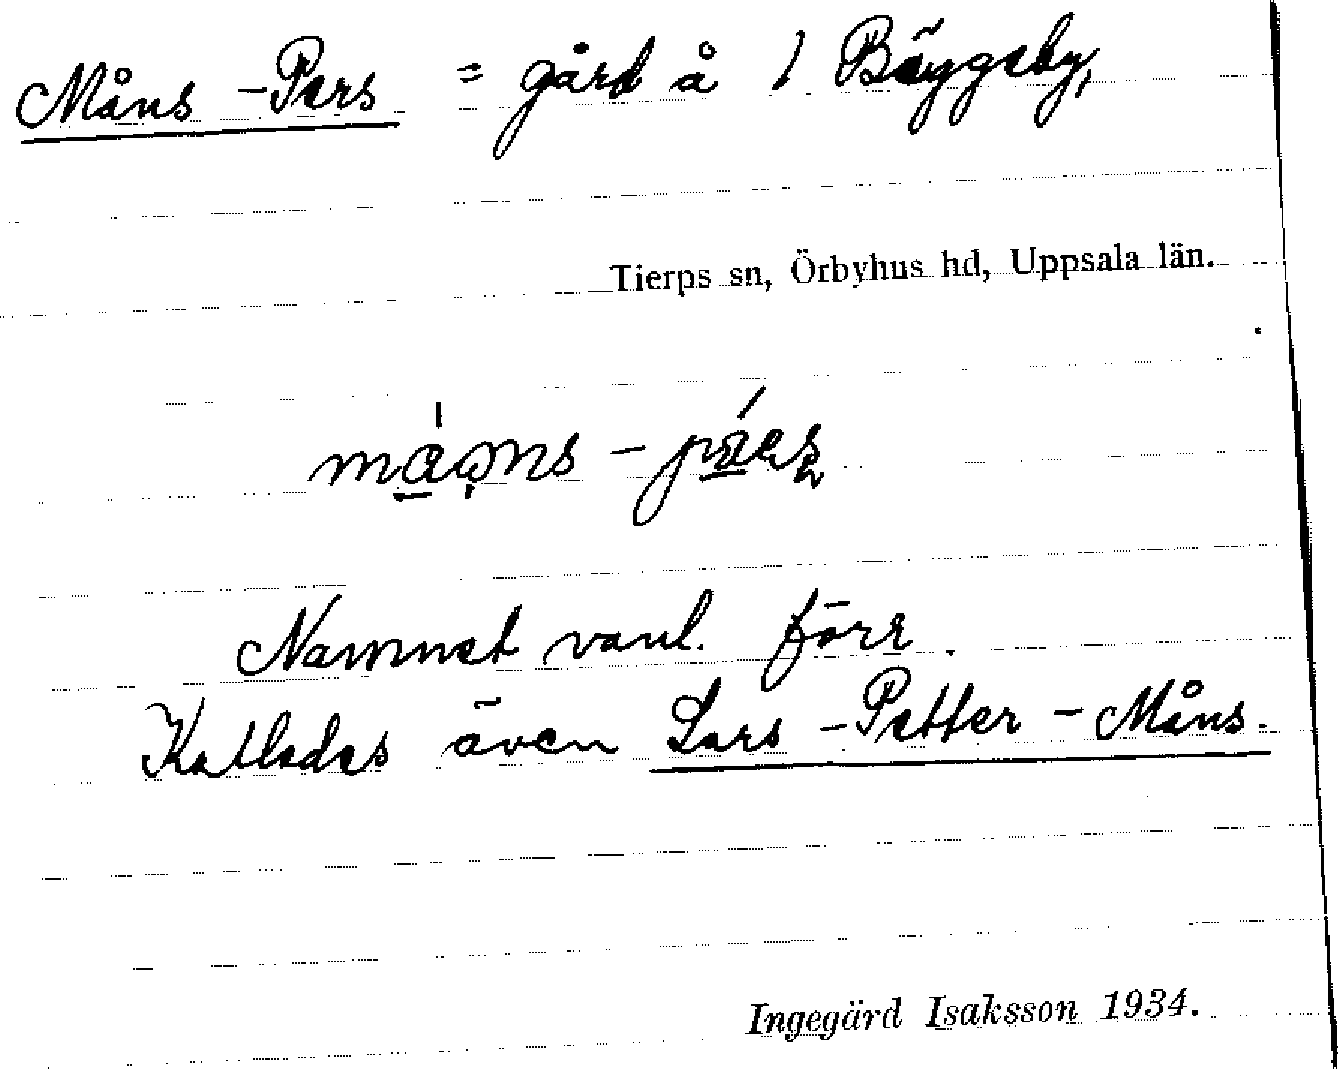 Måns-Pers = gård å 1 Bäggeby,
Tierps sn, Örbyhus hd, Uppsala län.
Namnet vanl. förr.
Kallades även Lars-Petter-Måns.
Ingegärd Isaksson 1934.